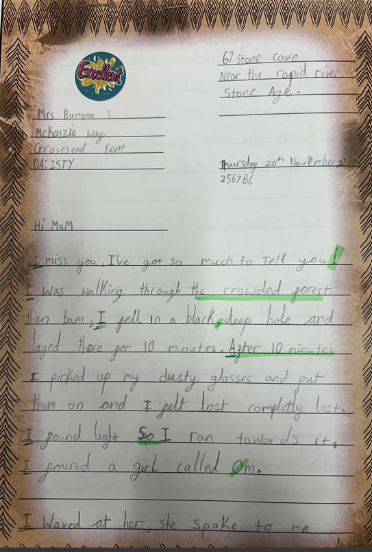 Excellent
67 Stone cave
Near the rapid river
Stone Age.
Mrs Ramona S
McKenzie Way
Gravesend Kent
DA12STY
Thursday 20th November
2567BC
Hi Mum
I miss you, I've got so much to tell you!
I was walking through the crowded forest
then bam, I fell in a black, deep hole and
layed there for 10 minutes. After 10 minutes
I picked up my dusty glasses and put
them on and I felt lost completly lost.
I found light So I ran towards it.
I found a girl called Om.
I Waved at her, she spoke to me